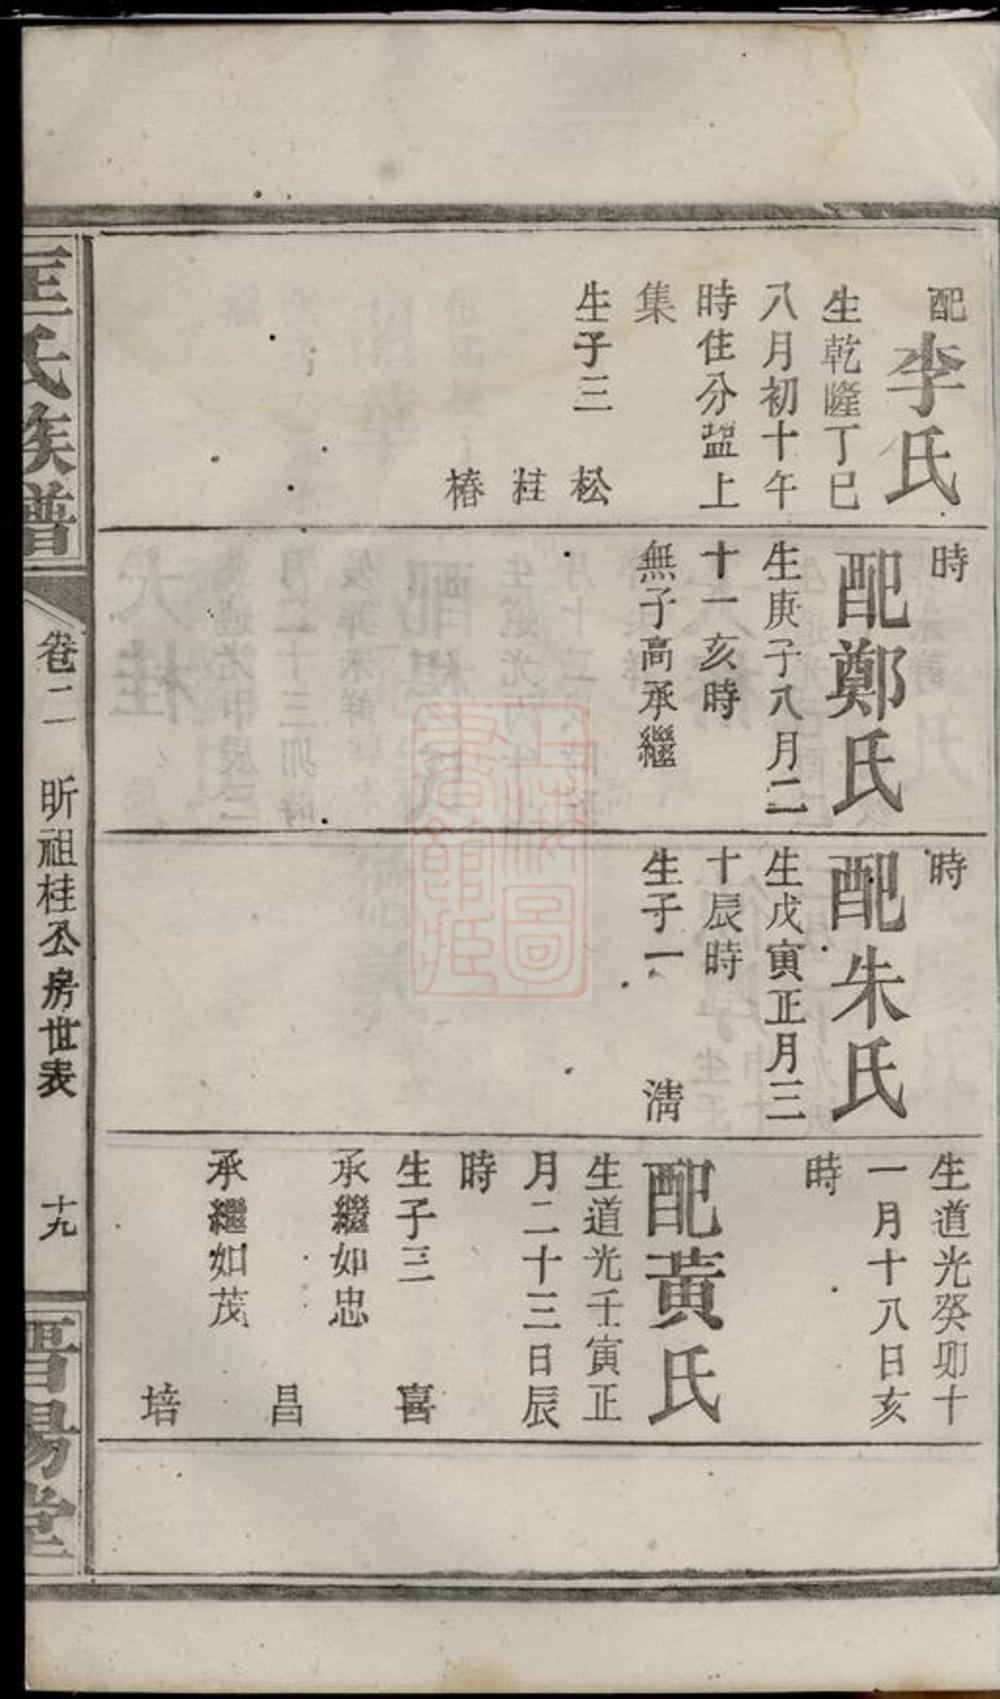 配李氏
生乾隆丁巳
八月初十午
時住分盌上
集
生子三
松
桂
椿
時
配鄭氏
生庚子八月二
十一亥時
無子高承繼
時
配朱氏
生戊寅正月三
十辰時
生子一
淸
生道光癸卯十
一月十八日亥
時
配黃氏
生道光壬寅正
月二十三日辰
時
生子三
喜
承繼如忠
昌
承繼如茂
培
匡氏族譜
卷二
昕祖桂公房世表
十九
晋陽堂
上海圖
書館藏